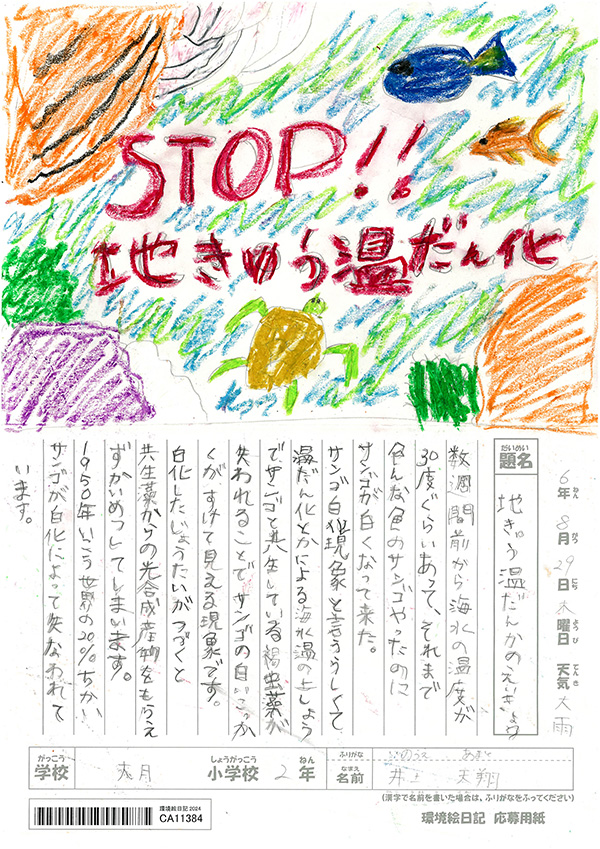 STOP!!
地きゅう温だん化
6年 8月 29日 木曜日 天気 大雨
ねん がつ にち ようび てんき
だいめい
題名
地きゅう温だんかのえいきょう
数週間前から海水の温度が
30度ぐらいあって、それまで
色んな色のサンゴやったのに
サンゴが白くなって来た。
サンゴ白化現象と言うらしくて
温だん化とかによる海水温の上しょう
でサンゴと共生している褐虫藻が
失われることでサンゴの白いこっか
くがすけて見える現象です。
白化したじょうたいがつづくと
共生藻からの光合成産物をもらえ
ずかいめつしてしまいます。
1950年いこう世界の20%ちかい
サンゴが白化によって失なわれて
います。
がっこう しょうがっこう ねん
学校 小学校 2年
ふりがな いのうえ あまと
なまえ
名前 井上 天翔
(漢字で名前を書いた場合は、ふりがなをふってください)
環境絵日記2024
CA11384
環境絵日記 応募用紙